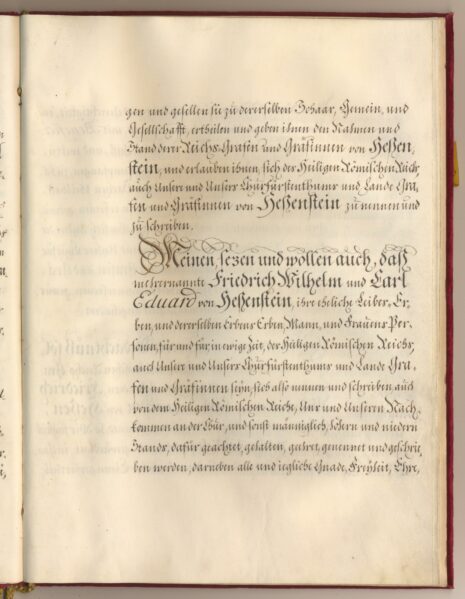 gen und gesellen sie zu dererselben Schaar, Gemein, und
Gesellschafft, ertheilen und geben ihnen den Nahmen und
Stand derer Reichs-Grafen und Gräfinnen von Heßen,
stein, und erlauben ihnen, sich des Heiligen Römischen Reichs,
auch Unsere und Unsers Churfürstenthums und Lande Gra,
fen und Gräfinnen von Heßenstein zu nennen und
zu schreiben.
Meinen, sezen und wollen auch, daß
mehrernannte Friedrich Wilhelm und Carl
Eduard von Heßenstein, ihre eheliche Leibes-Er,
ben, und derenselben Erbens-Erben, Mann, und Frauens-Per,
sonen, für und für in ewige Zeit, des Heiligen Römischen Reichs,
auch Unsere und Unsers Churfürstenthums und Lande Gra,
fen und Gräfinnen seyn, sich also nennen und schreiben auch
von dem Heiligen Römischen Reiche, Uns und Unsern Nach,
kommen an der Chur, und sonst männiglich, höhern und niedern
Stands, dafür geachtet, gehalten, geehret, genennet und geschrie,
ben werden, darneben alle und iegliche Gnade, Freyheit, Ehre,